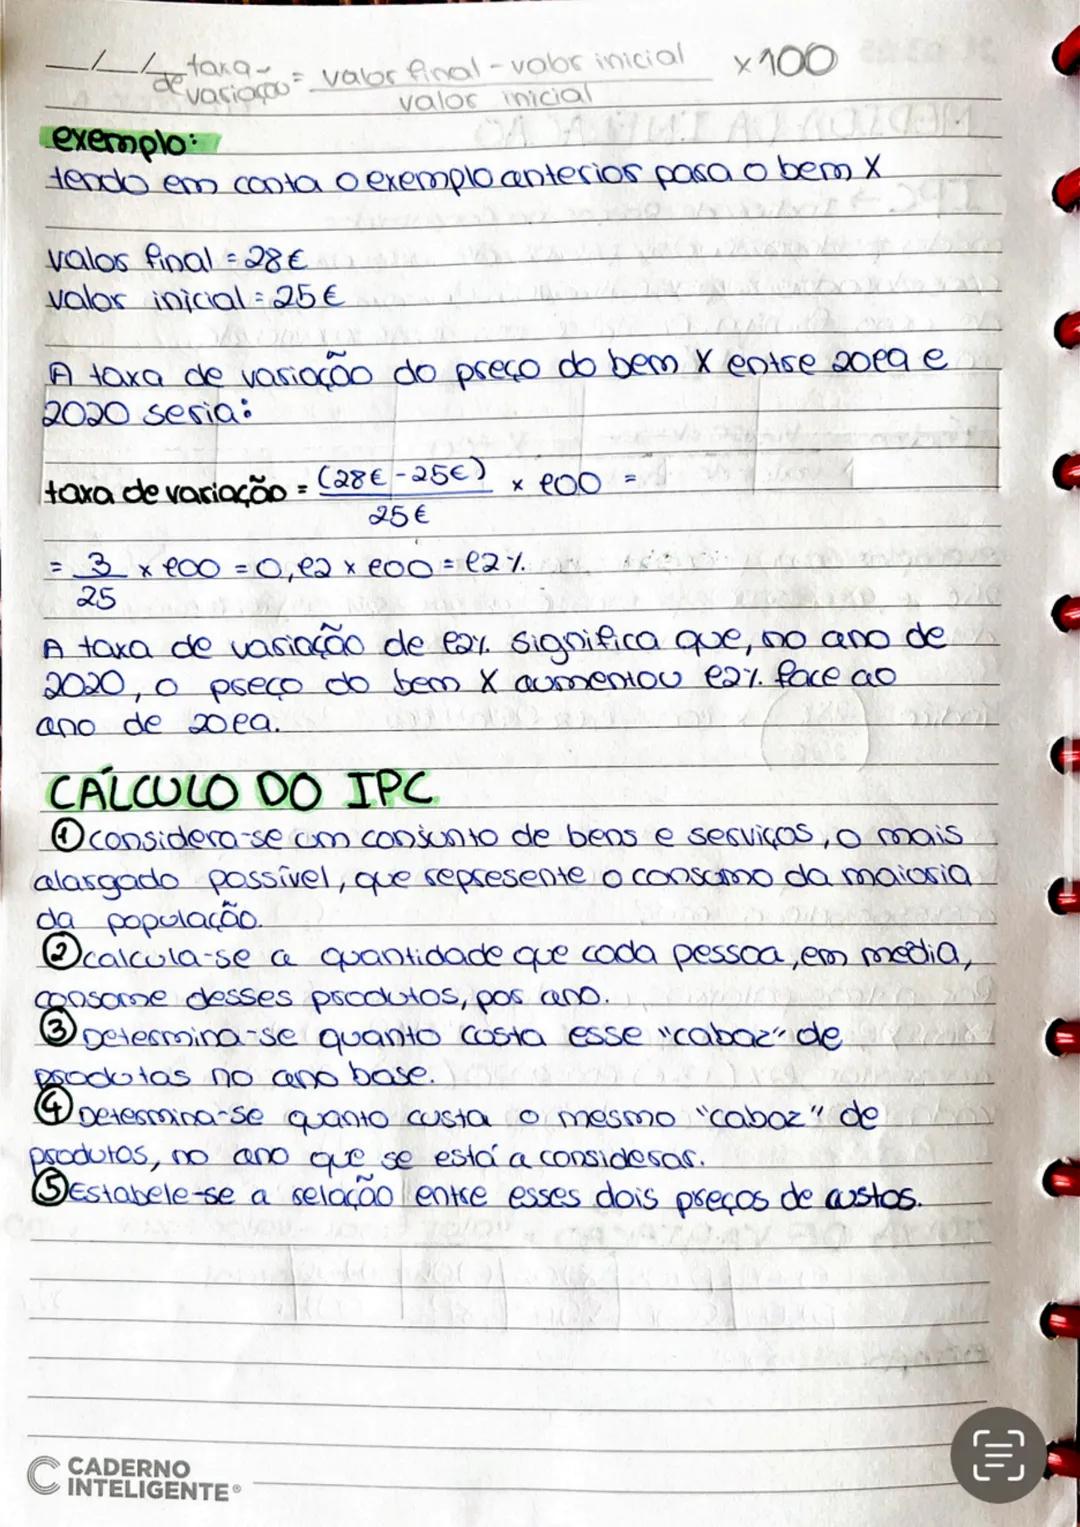 __/__/__ taxa de variação = valor final - valor inicial / valor inicial × 100
exemplo:
tendo em conta o exemplo anterior para o bem X
valor final = 28€
valor inicial = 25€
A taxa de variação do preço do bem X entre 2019 e
2020 seria:
taxa de variação = (28€ - 25€) / 25€ × 100 =
= 3/25 × 100 = 0,12 × 100 = 12%.
A taxa de variação de 12% significa que, no ano de
2020, o preço do bem X aumentou 12% face ao
ano de 2019.
CÁLCULO DO IPC
① considera-se um conjunto de bens e serviços, o mais
alargado possível, que represente o consumo da maioria
da população.
② calcula-se a quantidade que cada pessoa, em média,
consome desses produtos, por ano.
③ Determina-se quanto custa esse "cabaz" de
produtos no ano base.
④ Determina-se quanto custa o mesmo "cabaz" de
produtos, no ano que se está a considerar.
⑤ Estabele-se a relação entre esses dois preços de custos.
CADERNO
INTELIGENTE®